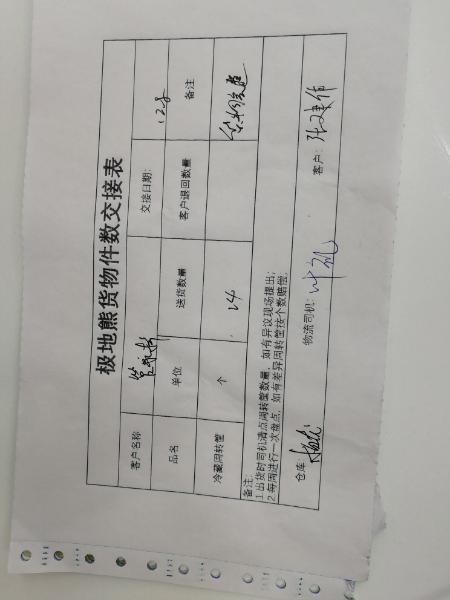 极地熊货物件数交接表
客户名称 交接日期: 128
品名 单位 送货数量 客户退回数量 备注
冷藏周转筐 个 24
备注:
1.出货时司机清点周转筐数量,如有异议现场提出;
2.每周进行一次盘点,如有差异周转筐按个数赔偿.
仓库: 物流司机: 叶礼 客户: 张建伟